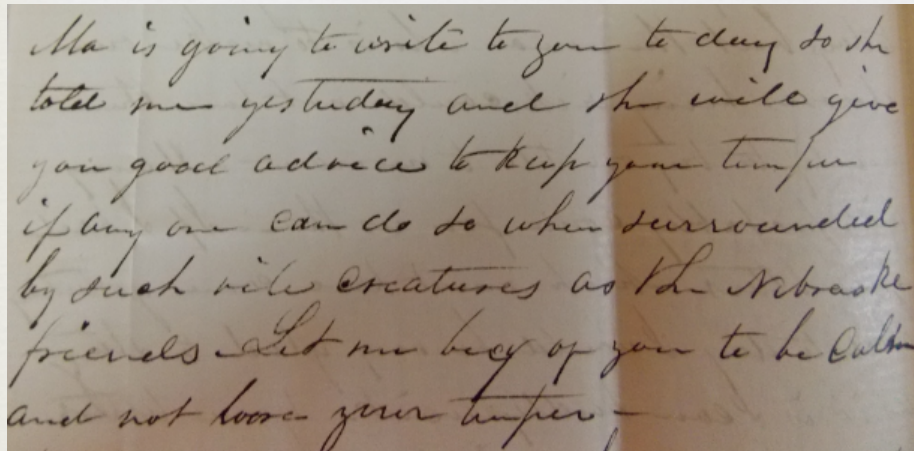 Ma is going to write to you to day so she
told me yesterday and she will give
you good advice to keep your temper
if any one can do so when surrounded
by such vile creatures as the Nebraska
friends - Let me beg of you to be calm
and not loose your temper -